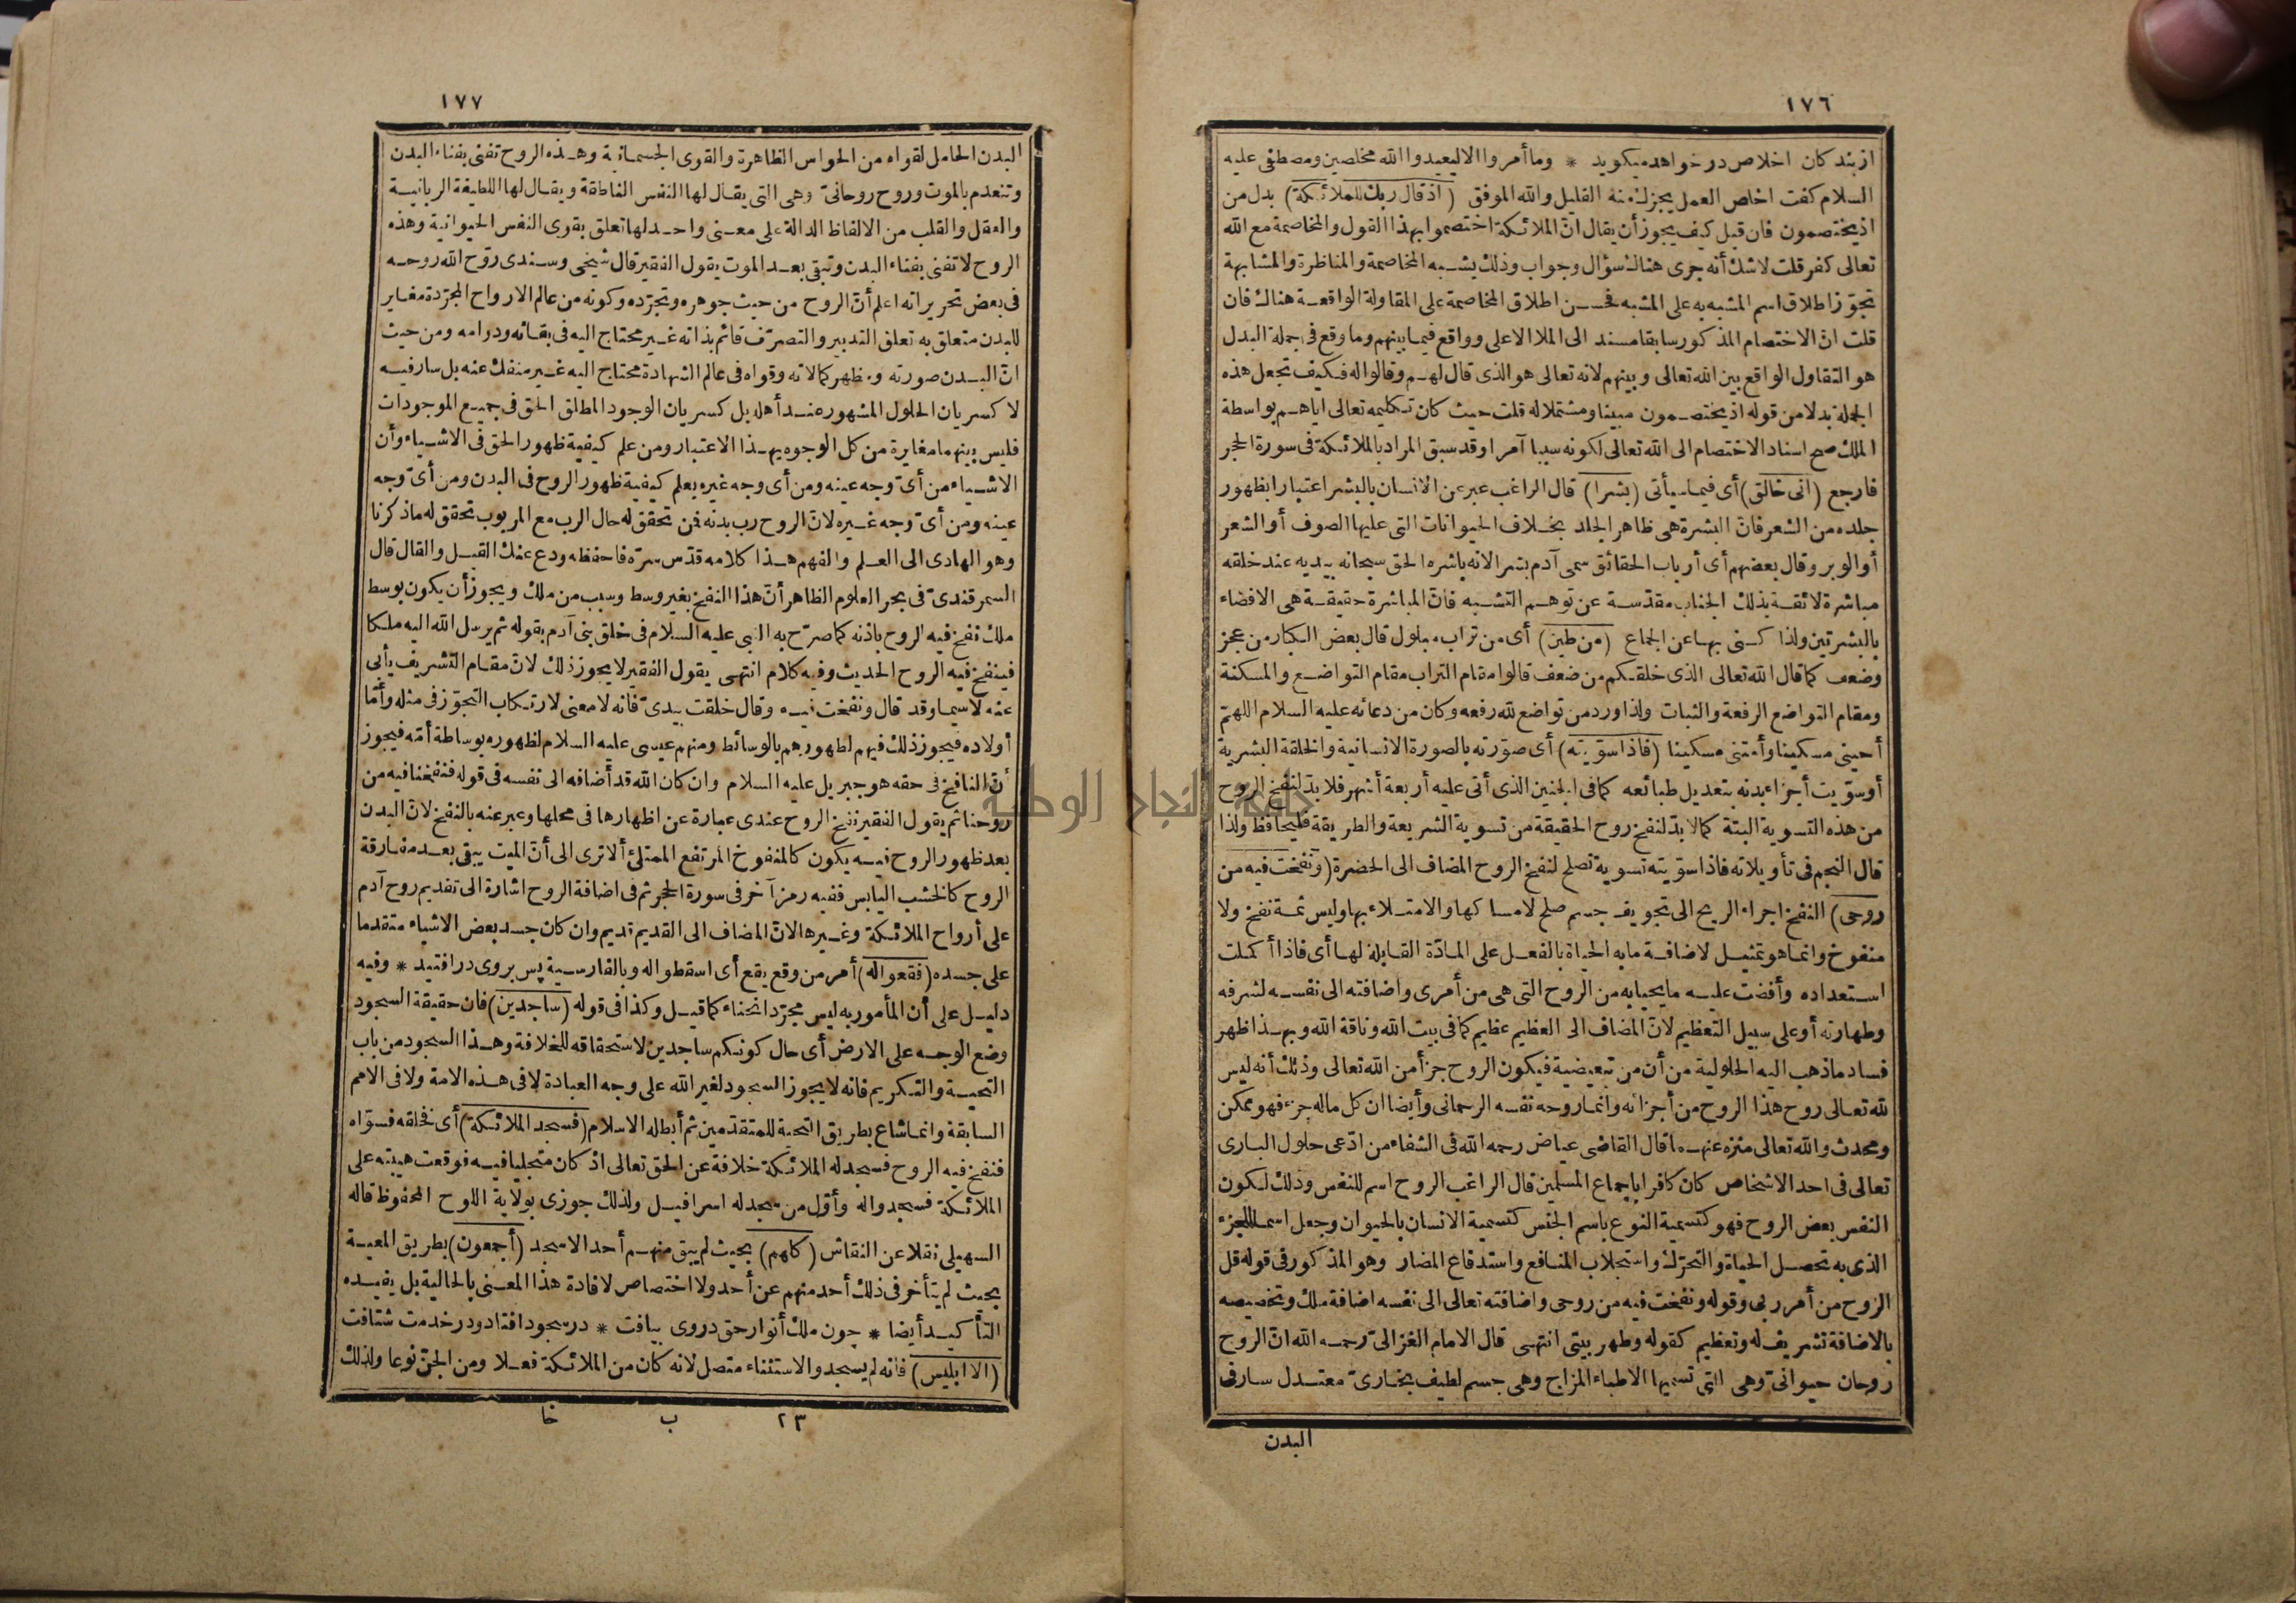 ١٧٦
از بندكان اخلاص درخواهد ميكويد * وما أمروا الا ليعبدوا الله مخلصين ومصطفى عليه
السلام كفت اخلص العمل يجزك منه القليل والله الموفق (اذ قال ربك للملائكة) بدل من
اذ يختصمون فان قيل كيف يجوز أن يقال انّ الملائكة اختصموا بهذا القول والمخاصمة مع الله
تعالى كفر قلت لاشك أنه جرى هناك سؤال وجواب وذلك يشبه المخاصمة والمناظرة والمشابهة
تجوّز اطلاق اسم المشبه به على المشبه فحسن اطلاق المخاصمة على المقاولة الواقعة هناك فان
قلت انّ الاختصام المذكور سابقا مسند الى الملا الاعلى وواقع فيما بينهم وما وقع فى جملة البدل
هو التقاول الواقع بين الله تعالى وبينهم لانه تعالى هو الذى قال لهم وقالوا له فكيف تجعل هذه
الجملة بدلا من قوله اذ يختصمون مبينا ومشتملا له قلت حيث كان تكليمه تعالى اياهم بواسطة
الملك صح اسناد الاختصام الى الله تعالى لكونه سببا آمرا وقد سبق المراد بالملائكة فى سورة الحجر
فارجع (انى خالق) أى فيما سيأتى (بشرا) قال الراغب عبر عن الانسان بالبشر اعتبارا بظهور
جلده من الشعر فانّ البشرة هى ظاهر الجلد بخلاف الحيوانات التى عليها الصوف أو الشعر
أو الوبر وقال بعضهم أى أرباب الحقائق سمى آدم بشرا لانه باشره الحق سبحانه بيديه عند خلقه
مباشرة لائقة بذلك الجناب مقدّسة عن توهم التشبه فانّ المباشرة حقيقة هى الافضاء
بالبشرتين ولذا كنى بها عن الجماع (من طين) أى من تراب مبلول قال بعض الكبار من عجز
وضعف كما قال الله تعالى الذى خلقكم من ضعف قالوا مقام التراب مقام التواضع والمسكنة
ومقام التواضع الرفعة والثبات ولذا ورد من تواضع لله رفعه وكان من دعائه عليه السلام اللهمّ
أحينى مسكينا وأمتنى مسكينا (فاذا سوّيته) أى صوّرته بالصورة الانسانية والخلقة البشرية
أو سوّيت أجزاء بدنه بتعديل طبائعه كما فى الجنين الذى أتى عليه أربعة أشهر فلا بدّ لنفخ الروح
من هذه التسوية البتة كما لا بدّ لنفخ روح الحقيقة من تسوية الشريعة والطريقة فليحافظ ولذا
قال النجم فى تأويلاته فاذا سوّيته تسوية تصلح لنفخ الروح المضاف الى الحضرة (ونفخت فيه من
روحى) النفخ اجراء الريح الى تجويف جسم صلح لامساكها والامتلاء بها وليس ثمة نفخ ولا
منفوخ وانما هو تمثيل لاضافة ما به الحياة بالفعل على المادّة القابلة لها أى فاذا أكملت
استعداده وأفضت عليه ما يحيا به من الروح التى هى من أمرى واضافته الى نفسه لشرفه
وطهارته أو على سبيل التعظيم لانّ المضاف الى العظيم عظيم كما فى بيت الله وناقة الله وبهذا ظهر
فساد ما ذهب اليه الحلولية من أن من تبعيضية فيكون الروح جزأ من الله تعالى وذلك أنه ليس
لله تعالى روح هذا الروح من أجزائه وانما روحه نفسه الرحمانى وأيضا ان كل ماله جزء فهو ممكن
ومحدث والله تعالى منزه عنهما قال القاضى عياض رحمه الله فى الشفاء من ادّعى حلول البارى
تعالى فى احد الاشخاص كان كافرا باجماع المسلمين قال الراغب الروح اسم للنفس وذلك لكون
النفس بعض الروح فهو كتسمية النوع باسم الجنس كتسمية الانسان بالحيوان وجعل اسما للجزء
الذى به تحصل الحياة والتحرّك واستجلاب المنافع واستدفاع المضار وهو المذكور فى قوله قل
الروح من أمر ربى وقوله ونفخت فيه من روحى واضافته تعالى الى نفسه اضافة ملك وتخصيصه
بالاضافة تشريف له وتعظيم كقوله وطهر بيتى انتهى قال الامام الغزالىّ رحمه الله انّ الروح
روحان حيوانىّ وهى التى تسميها الاطباء المزاج وهى جسم لطيف بخارىّ معتدل سار فى
البدن
١٧٧
البدن الحامل لقواه من الحواس الظاهرة والقوى الجسمانية وهذه الروح تفنى بفناء البدن
وتنعدم بالموت وروح روحانىّ وهى التى يقال لها النفس الناطقة ويقال لها اللطيفة الربانية
والعقل والقلب من الالفاظ الدالة على معنى واحد لها تعلق بقوى النفس الحيوانية وهذه
الروح لا تفنى بفناء البدن وتبقى بعد الموت يقول الفقير قال شيخى وسندى روّح الله روحه
فى بعض تحريراته اعلم أنّ الروح من حيث جوهره وتجرّده وكونه من عالم الارواح المجرّدة مغاير
للبدن متعلق به تعلق التدبير والتصرّف قائم بذاته غير محتاج اليه فى بقائه ودوامه ومن حيث
انّ البدن صورته ومظهر كمالاته وقواه فى عالم الشهادة محتاج اليه غير منفك عنه بل سار فيه
لا كسريان الحلول المشهور عند أهله بل كسريان الوجود المطلق الحق فى جميع الموجودات
فليس بينهما مغايرة من كل الوجوه بهذا الاعتبار ومن علم كيفية ظهور الحق فى الاشياء وأن
الاشياء من أىّ وجه عينه ومن أى وجه غيره يعلم كيفية ظهور الروح فى البدن ومن أىّ وجه
عينه ومن أىّ وجه غيره لانّ الروح رب بدنه فمن تحقق له حال الرب مع المربوب تحقق له ما ذكرنا
وهو الهادى الى العلم والفهم هذا كلامه قدّس سرّه فاحفظه ودع عنك القيل والقال قال
السمرقندىّ فى بحر العلوم الظاهر أنّ هذا النفخ بغير وسط وسبب من ملك ويجوز أن يكون بوسط
ملك نفخ فيه الروح باذنه كما صرّح به النبى عليه السلام فى خلق بنى آدم بقوله ثم يرسل الله اليه ملكا
فينفخ فيه الروح الحديث وفيه كلام انتهى يقول الفقير لا يجوز ذلك لانّ مقام التشريف يأبى
عنه لا سيما وقد قال ونفخت فيه وقال خلقت بيدىّ فانه لا معنى لارتكاب التجوّز فى مثله وأمّا
أولاده فيجوز ذلك فيهم لظهورهم بالوسائط ومنهم عيسى عليه السلام لظهوره بوساطة أمّه فيجوز
أنّ النافخ فى حقه هو جبريل عليه السلام وان كان الله قد أضافه الى نفسه فى قوله فنفخنا فيه من
روحنا ثم يقول الفقير نفخ الروح عندى عبارة عن اظهارها فى محلها وعبر عنه بالنفخ لانّ البدن
بعد ظهور الروح فيه يكون كالمنفوخ المرتفع الممتلئ ألا ترى الى أنّ الميت يبقى بعد مفارقة
الروح كالخشب اليابس ففيه رمز آخر فى سورة الحجر ثم فى اضافة الروح اشارة الى تقديم روح آدم
على أرواح الملائكة وغيرها لانّ المضاف الى القديم قديم وان كان جسد بعض الاشياء متقدما
على جسده (فقعوا له) أمر من وقع يقع أى اسقطوا له وبالفارسية پس بروى درافتيد * وفيه
دليل على أن المأمور به ليس مجرّد انحناء كما قيل وكذا فى قوله (ساجدين) فان حقيقة السجود
وضع الوجه على الارض أى حال كونكم ساجدين لاستحقاقه للخلافة وهذا السجود من باب
التحية والتكريم فانه لا يجوز السجود لغير الله على وجه العبادة لا فى هذه الامة ولا فى الامم
السابقة وانما شاع بطريق التحية للمتقدّمين ثم أبطله الاسلام (فسجد الملائكة) أى فخلقه فسوّاه
فنفخ فيه الروح فسجد له الملائكة خلافة عن الحق تعالى اذ كان متجليا فيه فوقعت هيبته على
الملائكة فسجدوا له وأوّل من سجد له اسرافيل ولذلك جوزى بولاية اللوح المحفوظ قاله
السهيلى نقلا عن النقاش (كلهم) بحيث لم يبق منهم أحد الا سجد (أجمعون) بطريق المعية
بحيث لم يتأخر فى ذلك أحد منهم عن أحد ولا اختصاص لافادة هذا المعنى بالحالية بل يفيده
التأكيد أيضا * چون ملك أنوار حق دروى بيافت * درسجود افتاد ودر خدمت شتافت
(الا ابليس) فانه لم يسجد والاستثناء متصل لانه كان من الملائكة فعلا ومن الجنّ نوعا ولذلك
٢٣ ب خا
جامعة النجاح الوطنية